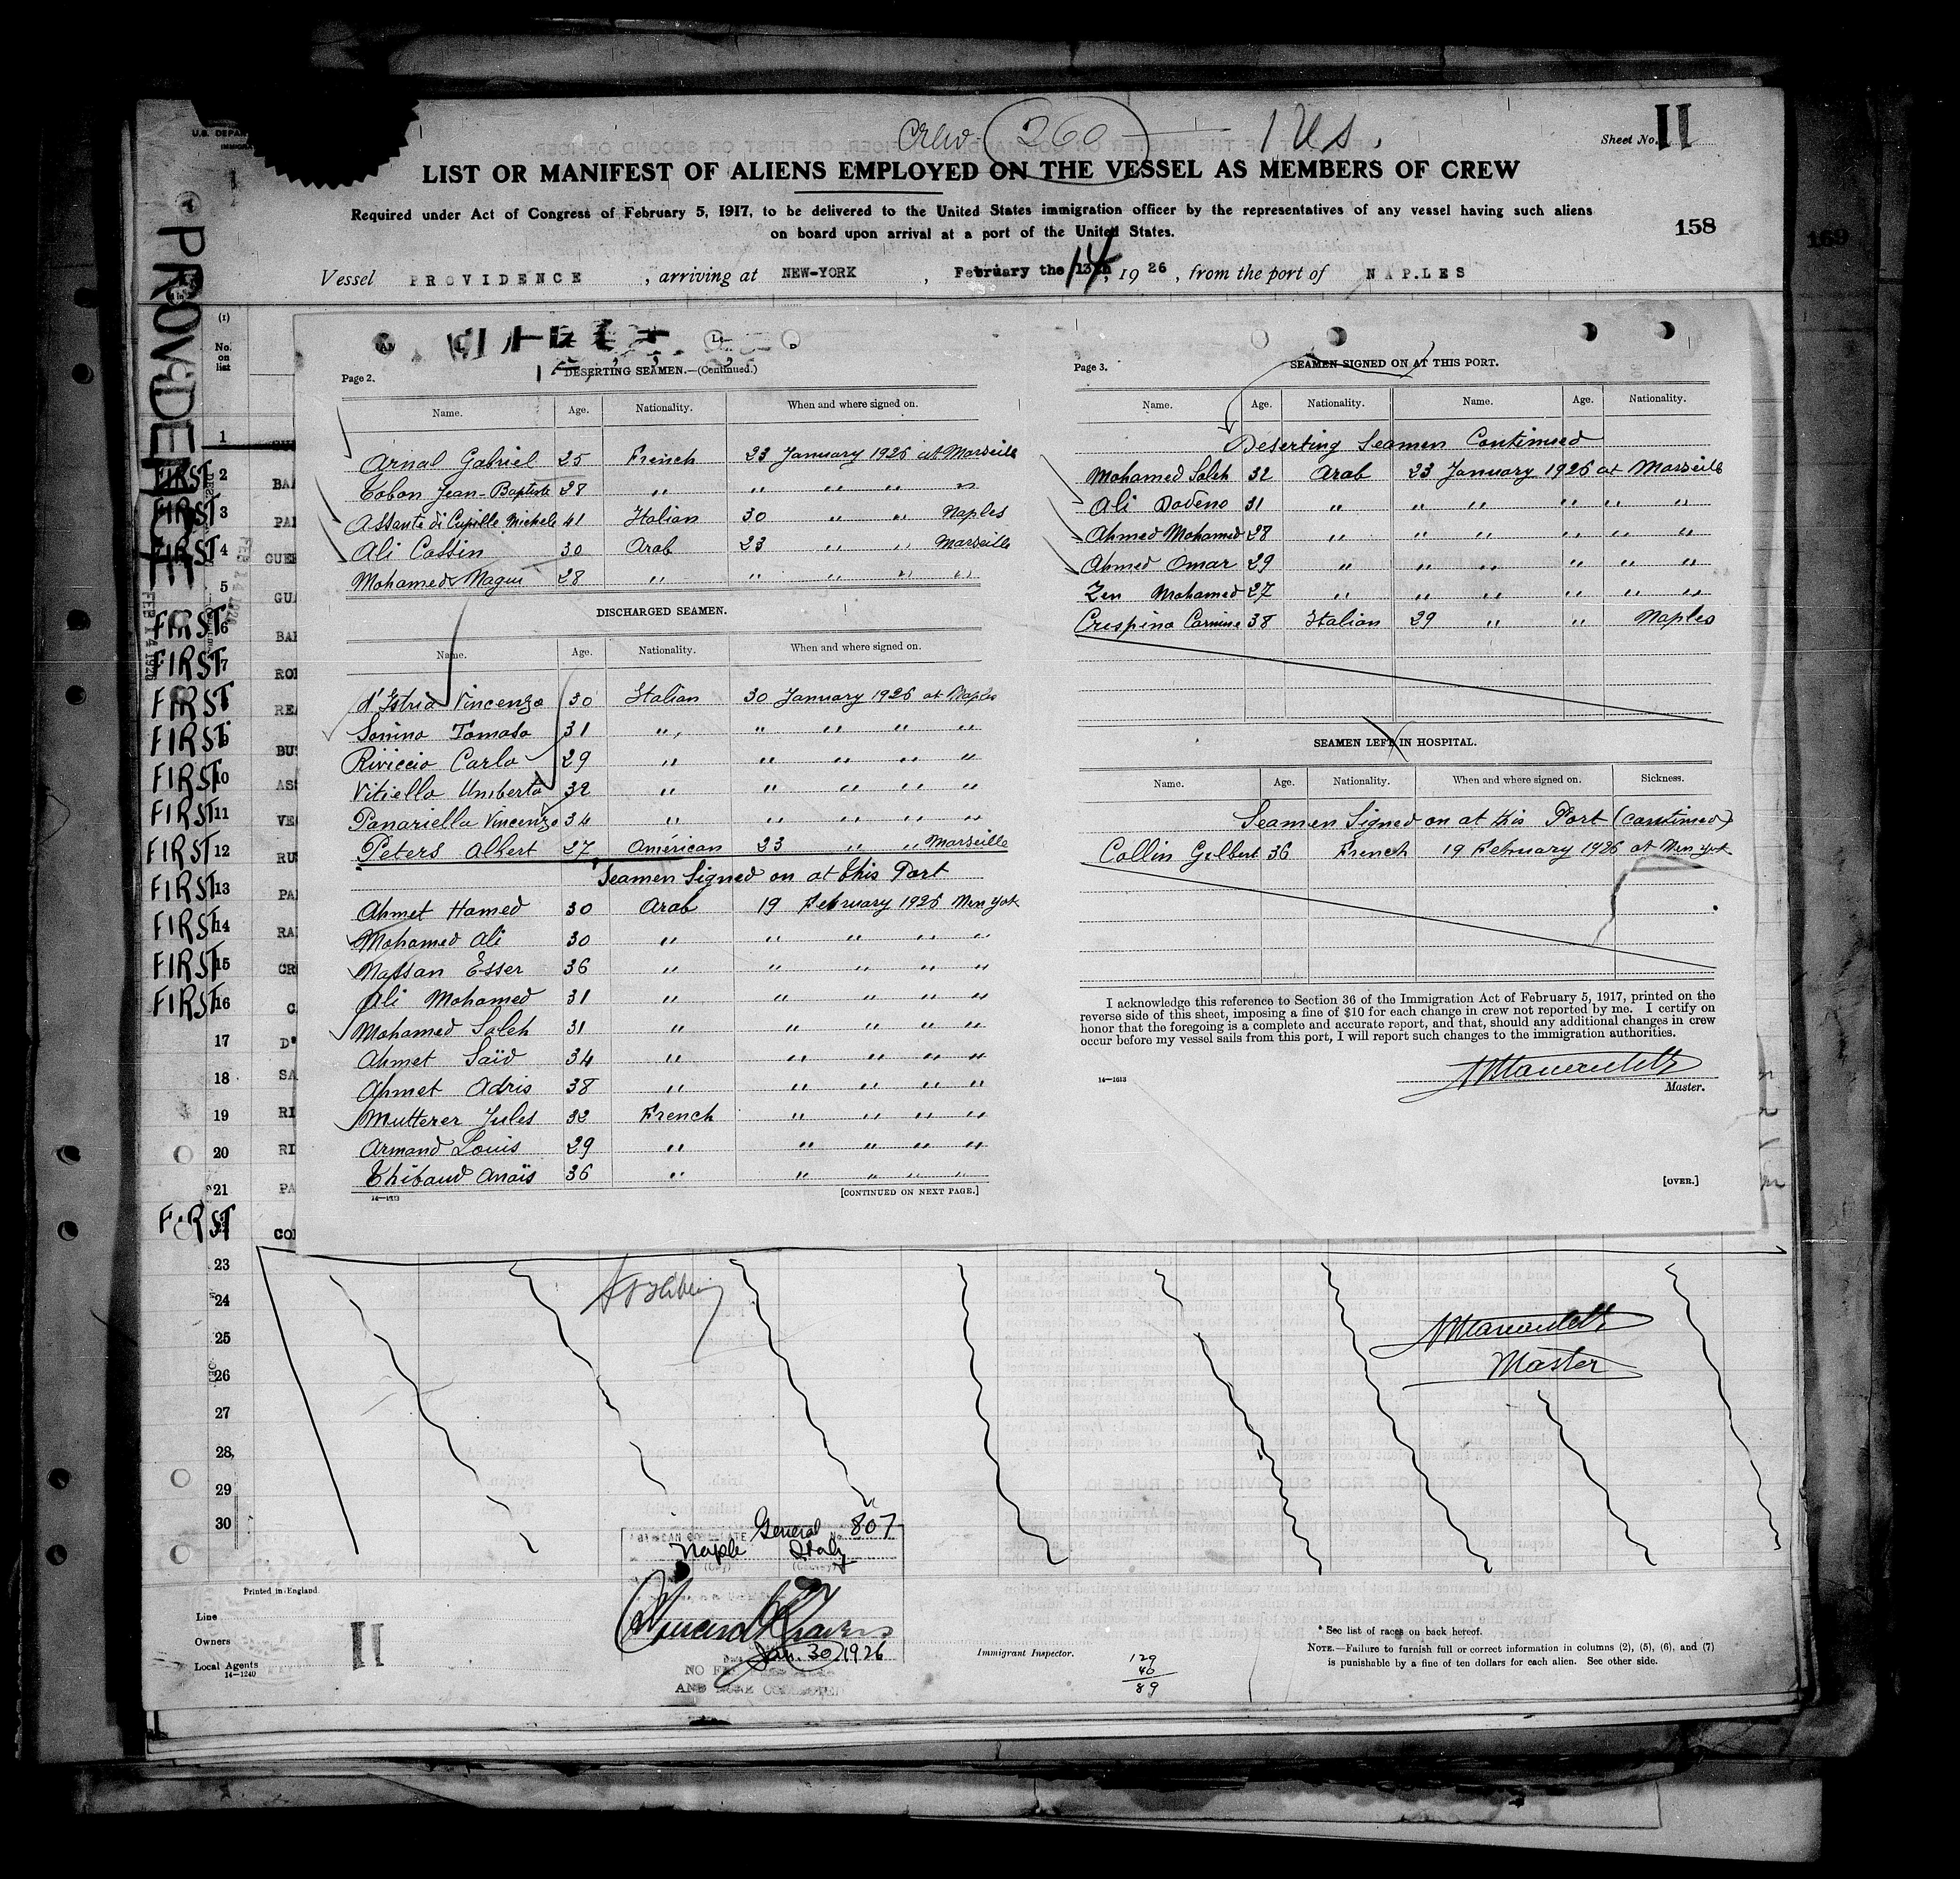 Crew 260 — 1 Us.
Sheet No. II
LIST OR MANIFEST OF ALIENS EMPLOYED ON THE VESSEL AS MEMBERS OF CREW
Required under Act of Congress of February 5, 1917, to be delivered to the United States immigration officer by the representatives of any vessel having such aliens
on board upon arrival at a port of the United States.
158
169
Vessel PROVIDENCE , arriving at NEW-YORK , February the 13th 14, 1926 , from the port of NAPLES
PROVIDENCE
(1)
No. on list
Page 2.
DESERTING SEAMEN.—(Continued.)
Name. Age. Nationality. When and where signed on.
Arnal Gabriel 25 French 23 January 1926 at Marseille
Tobon Jean-Baptiste 28 " " " " "
Assante di Cupille Michele 41 Italian 30 " " Naples
Ali Cassin 30 Arab 23 " " Marseille
Mohamed Magui 28 " " " " "
DISCHARGED SEAMEN.
Name. Age. Nationality. When and where signed on.
d'Istria Vincenzo 30 Italian 30 January 1926 at Naples
Sonino Tomaso 31 " " " " "
Riviccio Carlo 29 " " " " "
Vitiello Umberto 32 " " " " "
Panariello Vincenzo 34 " " " " "
Peters Albert 27 Américan 23 " " Marseille
Seamen Signed on at this Port
Ahmet Hamed 30 Arab 19 February 1926 New york
Mohamed Ali 30 " " " " "
Nassan Esser 36 " " " " "
Ali Mohamed 31 " " " " "
Mohamed Saleh 31 " " " " "
Ahmet Saïd 34 " " " " "
Ahmet Adris 38 " " " " "
Mutterer Jules 32 French " " " "
Armand Louis 29 " " " " "
Thibaud Anaïs 36 " " " " "
14—1613
[CONTINUED ON NEXT PAGE.]
Page 3.
SEAMEN SIGNED ON AT THIS PORT.
Name. Age. Nationality. Name. Age. Nationality.
Deserting Seamen Continued
Mohamed Saleh 32 Arab 23 January 1926 at Marseille
Ali Dodeno 31 " " " " " "
Ahmed Mohamed 28 " " " " " "
Ahmed Omar 29 " " " " " "
Zen Mohamed 27 " " " " " "
Crespino Carmine 38 Italian 29 " " Naples
SEAMEN LEFT IN HOSPITAL.
Name. Age. Nationality. When and where signed on. Sickness.
Seamen Signed on at this Port (continued)
Collin Gilbert 36 French 19 February 1926 at New york
I acknowledge this reference to Section 36 of the Immigration Act of February 5, 1917, printed on the
reverse side of this sheet, imposing a fine of $10 for each change in crew not reported by me. I certify on
honor that the foregoing is a complete and accurate report, and that, should any additional changes in crew
occur before my vessel sails from this port, I will report such changes to the immigration authorities.
14—1613
Master.
[OVER.]
1
FIRST 2 BA
FIRST 3 PA
FIRST 4 GUE
5 GU
FIRST 6 BA
FIRST 7 RO
FIRST 8 RE
FIRST 9 BU
FIRST 10 AS
FIRST 11 VE
FIRST 12 RU
FIRST 13 PA
FIRST 14 RA
FIRST 15 CR
FIRST 16
17 D'
18 SA
19 RI
20 RI
21 PA
FIRST CO
FEB 14 1926
23
24
25
26
27
28
29
30
Master
General No. 807
Naple Italy
(City) (Country)
Jan. 30 1926
Printed in England.
Line
Owners
Local Agents
14—1240
II
Immigrant Inspector.
129
40
89
* See list of races on back hereof.
NOTE.—Failure to furnish full or correct information in columns (2), (5), (6), and (7)
is punishable by a fine of ten dollars for each alien. See other side.